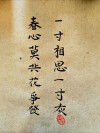 春心莫共花爭發
一寸相思一寸灰